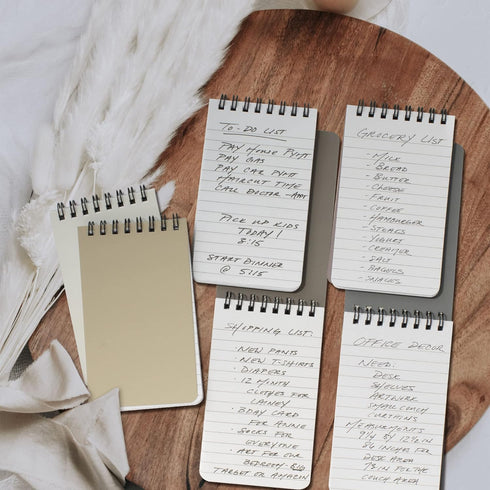 To-Do List
Pay Home Pymt
Pay Gas
Pay Car Pymt
Haircut Time
Call Doctor - Amy
Pick up kids
Today!
8:15
Start Dinner
@ 5:15
Grocery List
- Milk
- Bread
- Butter
- Cheese
- Fruit
- Coffee
- Hamburger
- Steaks
- Yogurt
- Creamer
- Salt
- Bagels
- Snacks
Shopping List:
- New Pants
- New T-Shirts
- Diapers
- 12 Month
Clothes for
Lainey
- Bday Card
for Annie
- Socks for
Everyone
- Art for Our
Bedroom
Target or Amazon
Office Decor
Need:
Desk
Shelves
Artwork
Small Couch
Curtains
Measurements
86 inches for
Desk Area
73 in for the
Couch Area